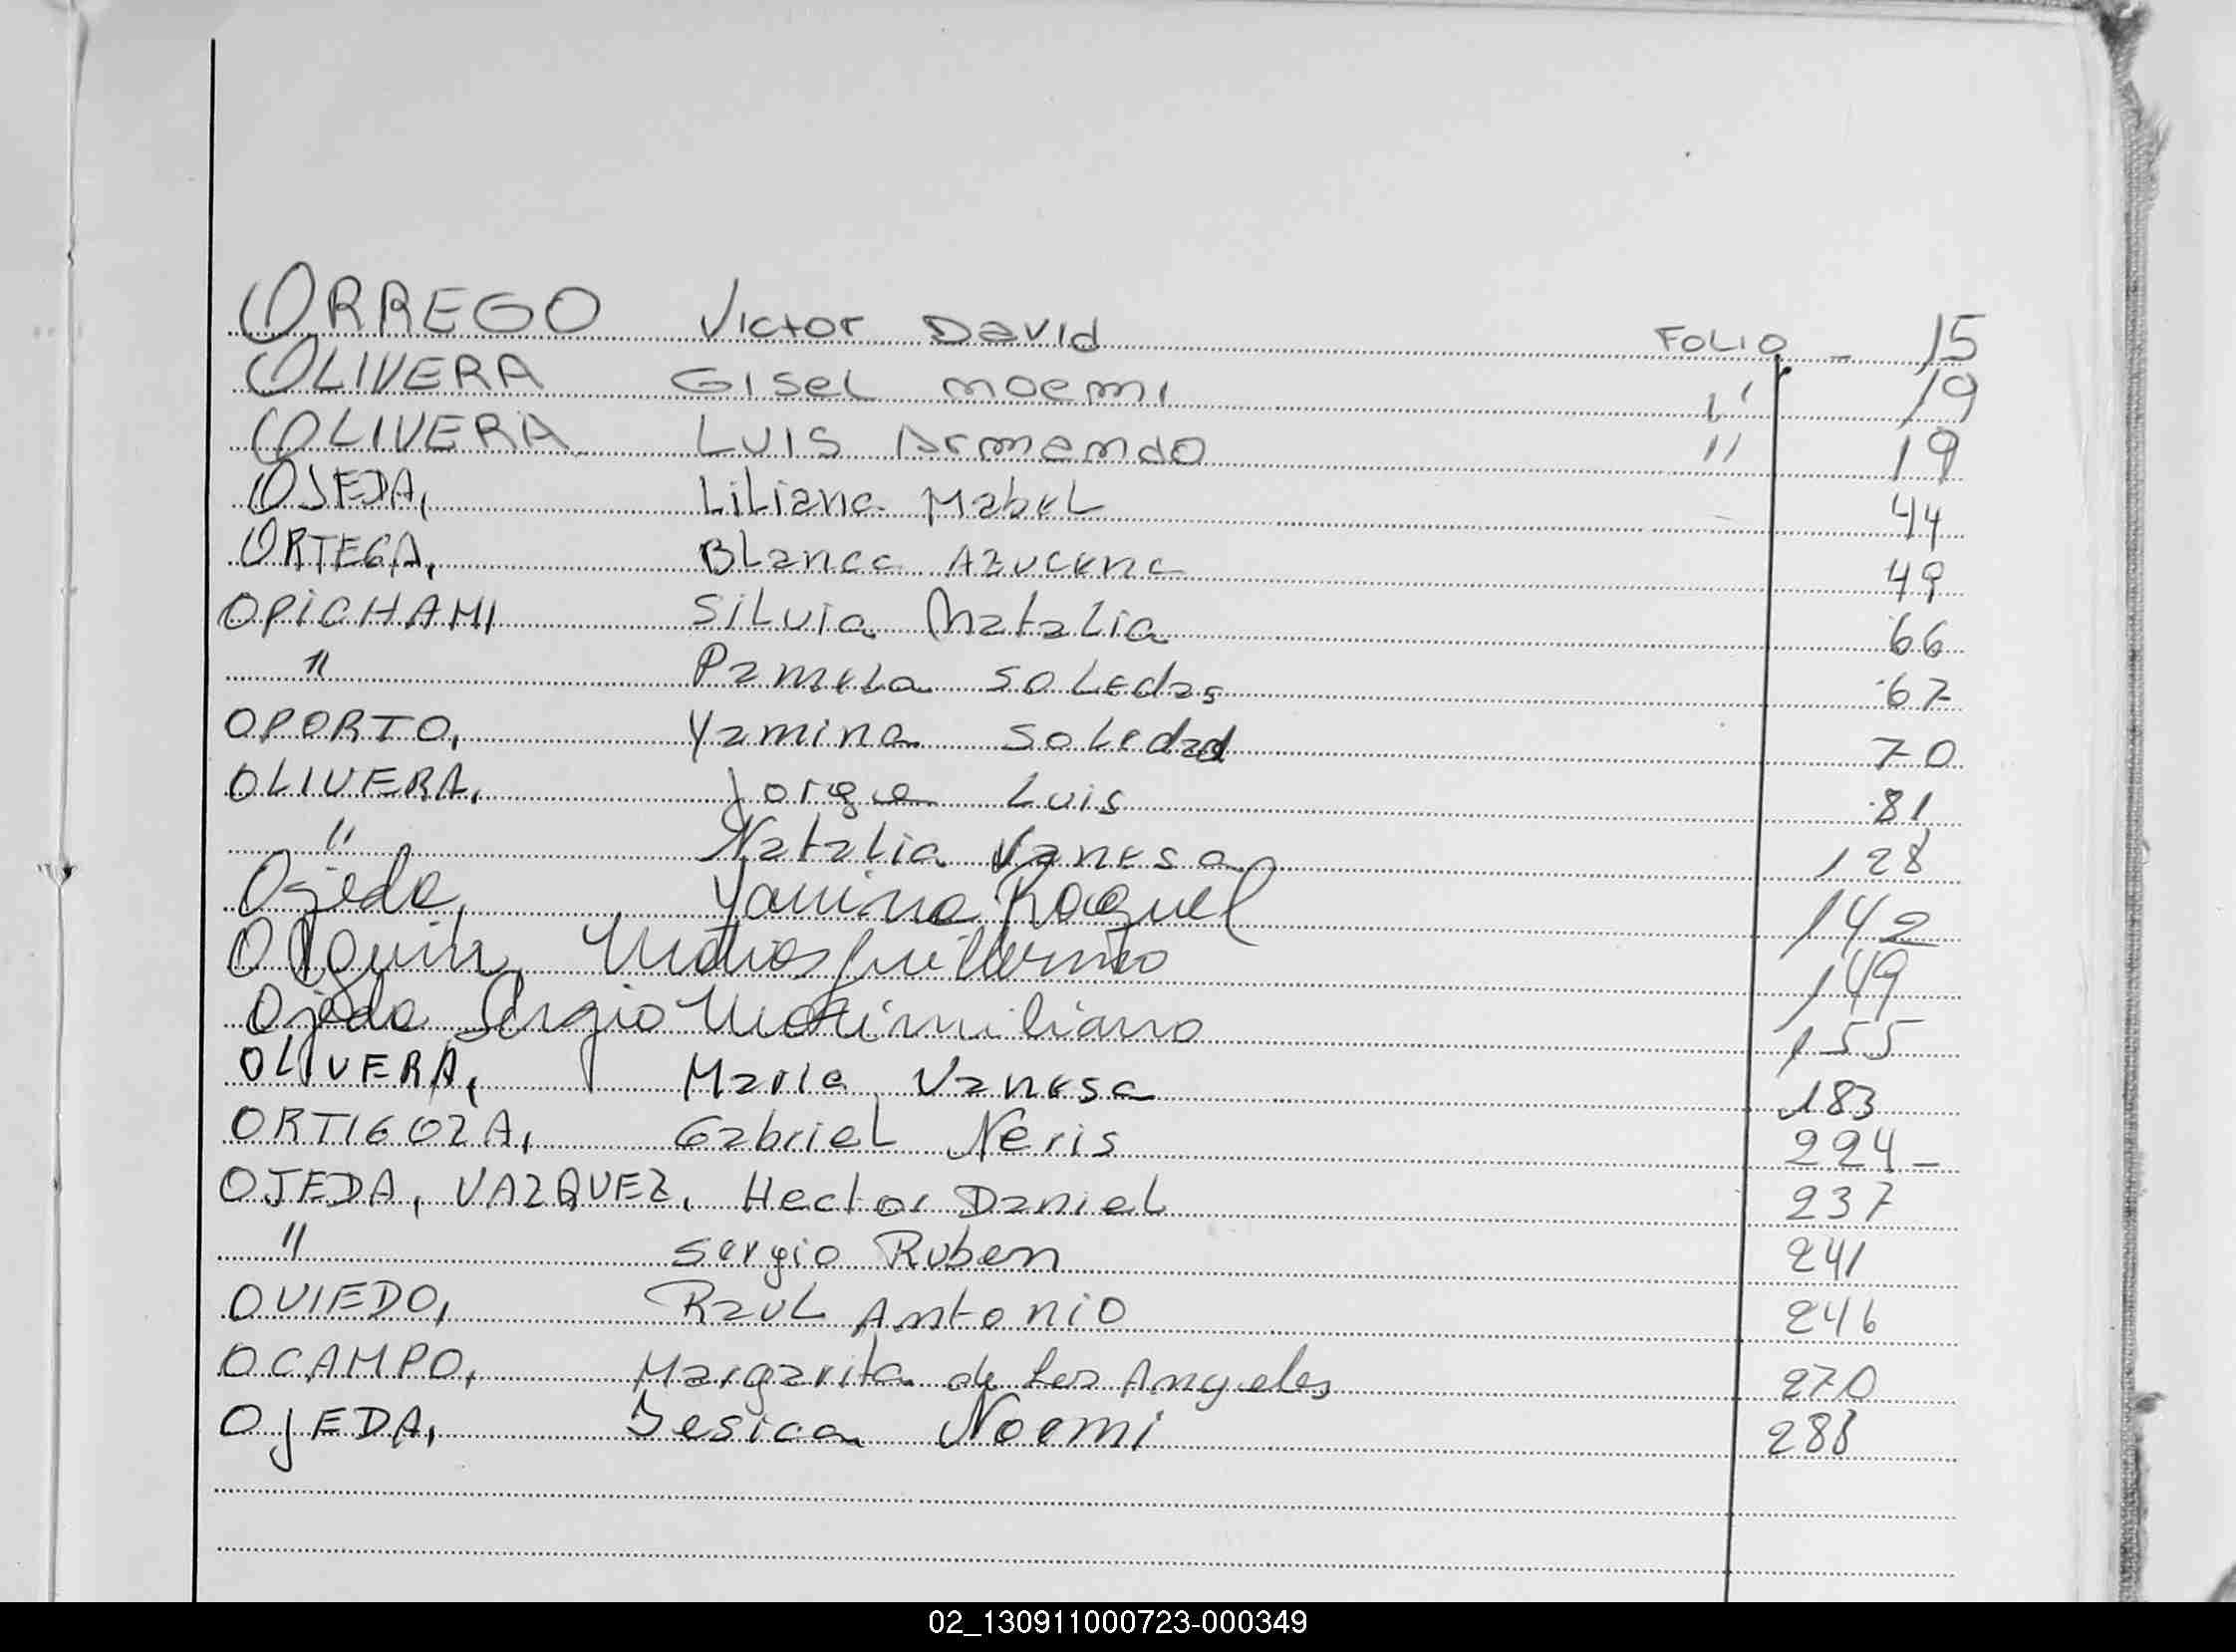 ORREGO Victor David FOLIO - 15
OLIVERA Gisel Noemi " 19
OLIVERA Luis Armando " 19
OJEDA, Liliana Mabel 44
ORTEGA, Blanca Azucena 49
OPICHAMI Silvia Natalia 66
" Pamela Soledas 67
OPORTO, Yamina Soledad 70
OLIVERA, Jorge Luis 81
" Natalia Vanesa 128
Ojeda, Yanina Raquel 142
Olguin, Matias Guillermo 149
Ojeda Sergio Maximiliano 155
OLIVERA, Maria Vanesa 183
ORTIGOZA, Gabriel Neris 224-
OJEDA, VAZQUEZ, Hector Daniel 237
" Sergio Ruben 241
OVIEDO, Raul Antonio 246
OCAMPO, Margarita de Los Angeles 270
OJEDA, Jesica Noemi 288
02_130911000723-000349